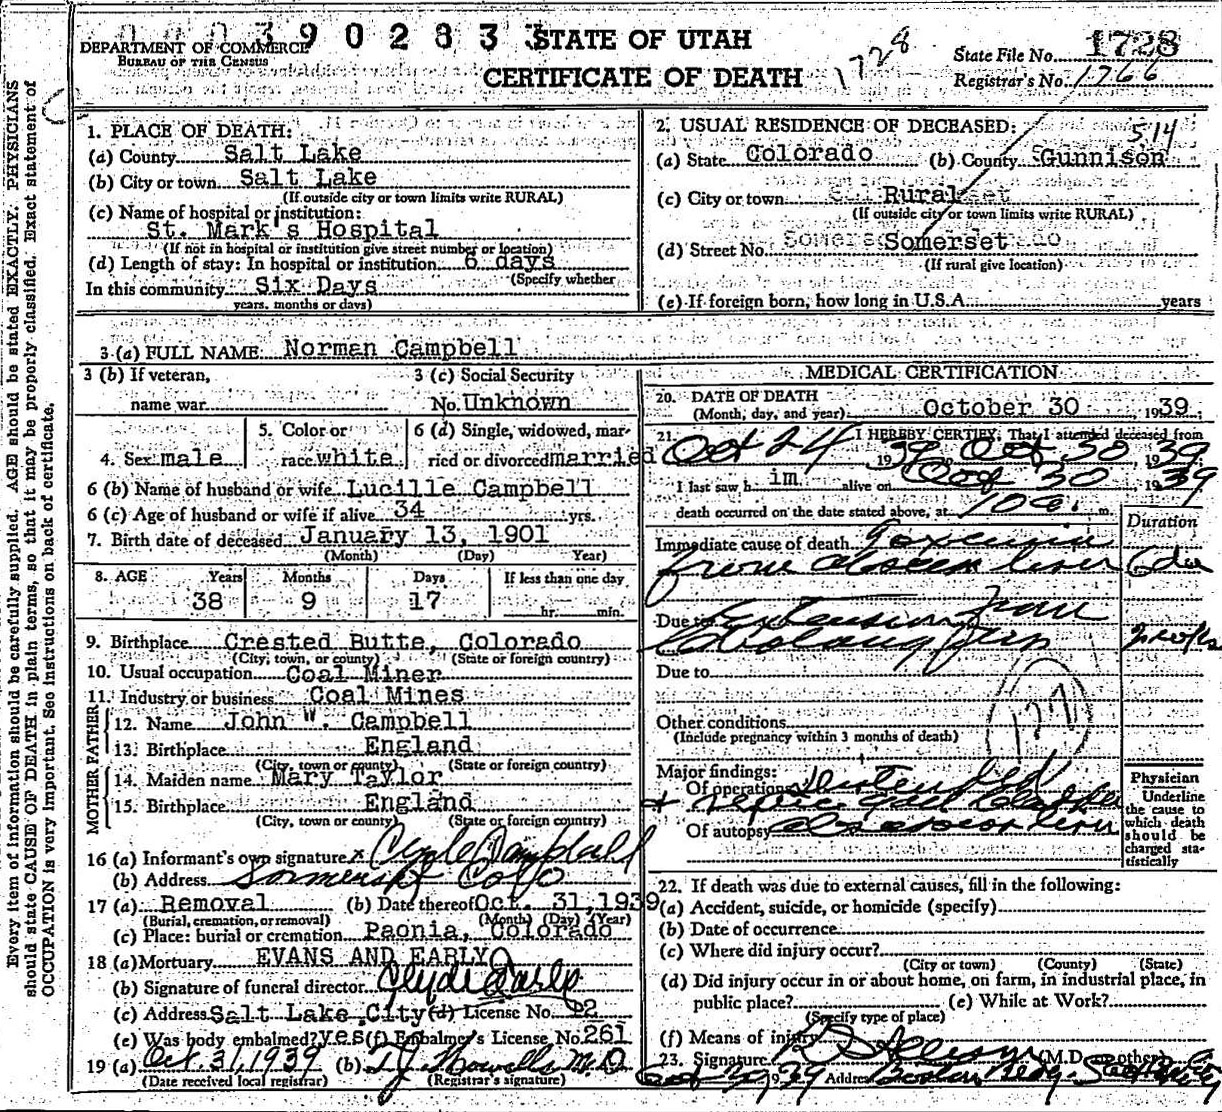 000390283
STATE OF UTAH
CERTIFICATE OF DEATH
DEPARTMENT OF COMMERCE
BUREAU OF THE CENSUS
1728
State File No. 1728
Registrar's No. 1766
Every item of information should be carefully supplied. AGE should be stated EXACTLY. PHYSICIANS
should state CAUSE OF DEATH in plain terms, so that it may be properly classified. Exact statement of
OCCUPATION is very important. See instructions on back of certificate.
1. PLACE OF DEATH:
(a) County Salt Lake
(b) City or town Salt Lake
(If outside city or town limits write RURAL)
(c) Name of hospital or institution:
St. Mark's Hospital
(If not in hospital or institution give street number or location)
(d) Length of stay: In hospital or institution 6 days
(Specify whether
In this community Six Days
years, months or days)
2. USUAL RESIDENCE OF DECEASED:
514
(a) State Colorado (b) County Gunnison
(c) City or town Rural
(If outside city or town limits write RURAL)
(d) Street No. Somerset
(If rural give location)
(e) If foreign born, how long in U.S.A. years
3 (a) FULL NAME: Norman Campbell
3 (b) If veteran,
name war
3 (c) Social Security
No. Unknown
4. Sex male
5. Color or
race white
6 (d) Single, widowed, mar-
ried or divorced married
6 (b) Name of husband or wife Lucille Campbell
6 (c) Age of husband or wife if alive 34 yrs.
7. Birth date of deceased January 13, 1901
(Month) (Day) Year)
8. AGE Years Months Days If less than one day
38 9 17 hr. min.
9. Birthplace Crested Butte, Colorado
(City, town, or county) (State or foreign country)
10. Usual occupation Coal Miner
11. Industry or business Coal Mines
FATHER
12. Name John W. Campbell
13. Birthplace England
(City, town or county) (State or foreign country)
MOTHER
14. Maiden name Mary Taylor
15. Birthplace England
(City, town or county) (State or foreign country)
16 (a) Informant's own signature x Clyde Campbell
(b) Address Somerset Colo
17 (a) Removal (b) Date thereof Oct. 31, 1939
(Burial, cremation, or removal) (Month) (Day) (Year)
(c) Place: burial or cremation Paonia, Colorado
18 (a) Mortuary EVANS AND EARLY
(b) Signature of funeral director Clyde Early
(c) Address Salt Lake City (d) License No. 12
(e) Was body embalmed? yes (f) Embalmer's License No. 261
19 (a) Oct. 31, 1939 (b) T J Howells M.D.
(Date received local registrar) (Registrar's signature)
MEDICAL CERTIFICATION
20. DATE OF DEATH
(Month, day, and year) October 30, 1939.
21. I HEREBY CERTIFY, That I attended deceased from
Oct 24 1939, Oct 30, 1939
I last saw him alive on Oct 30 1939
death occurred on the date stated above, at 10 a. m.
Duration
Immediate cause of death Toxemia
from abscess liver 6 da
Due to Extension from
2 wks
Due to
Other conditions
(Include pregnancy within 3 months of death)
127
Major findings:
Of operations
gall bladder
Of autopsy abscess of liver
Physician
Underline
the cause to
which death
should be
charged sta-
tistically
22. If death was due to external causes, fill in the following:
(a) Accident, suicide, or homicide (specify)
(b) Date of occurrence
(c) Where did injury occur?
(City or town) (County) (State)
(d) Did injury occur in or about home, on farm, in industrial place, in
public place? (e) While at Work?
(Specify type of place)
(f) Means of injury
23. Signature Allison (M.D. or other)
Oct 30 1939 Address Boston Bldg. Salt Lake City